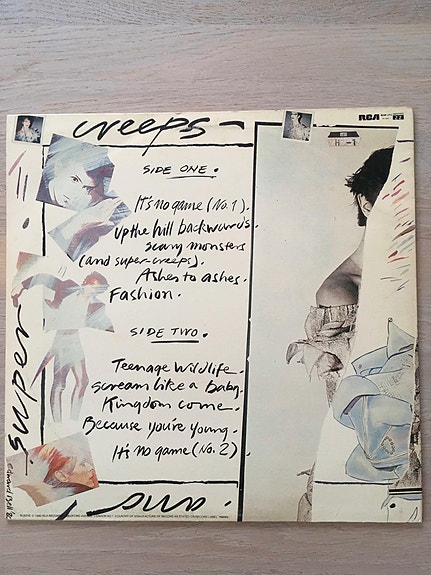 creeps
RCA
SIDE ONE.
It's no game (No. 1).
up the hill backwards.
scary monsters
(and super-creeps).
Ashes to ashes.
Fashion.
SIDE TWO.
Teenage Wildlife.
scream like a baby.
Kingdom come.
Because you're young.
It's no game (No. 2).
super
and